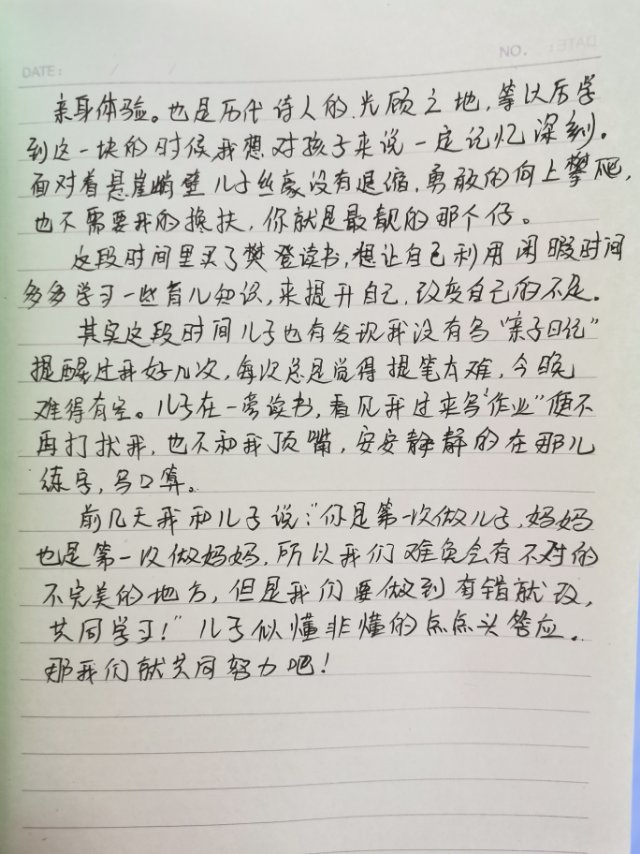 DATE: / /
NO.
亲身体验。也是历代诗人的光顾之地，等以后学
到这一块的时候我想对孩子来说一定记忆深刻。
面对着悬崖峭壁儿子丝毫没有退缩，勇敢的向上攀爬，
也不需要我的搀扶，你就是最靓的那个仔。
这段时间里买了樊登读书，想让自己利用闲暇时间
多多学习一些育儿知识，来提升自己，改变自己的不足。
其实这段时间儿子也有发现我没有写“亲子日记”
提醒过我好几次，每次总是觉得提笔太难，今晚
难得有空。儿子在一旁读书，看见我过来写“作业”便不
再打扰我，也不和我顶嘴，安安静静的在那儿
练字，写口算。
前几天我和儿子说：“你是第一次做儿子，妈妈
也是第一次做妈妈，所以我们难免会有不对的
不完美的地方，但是我们要做到有错就改，
共同学习！”儿子似懂非懂的点点头答应。
那我们就共同努力吧！